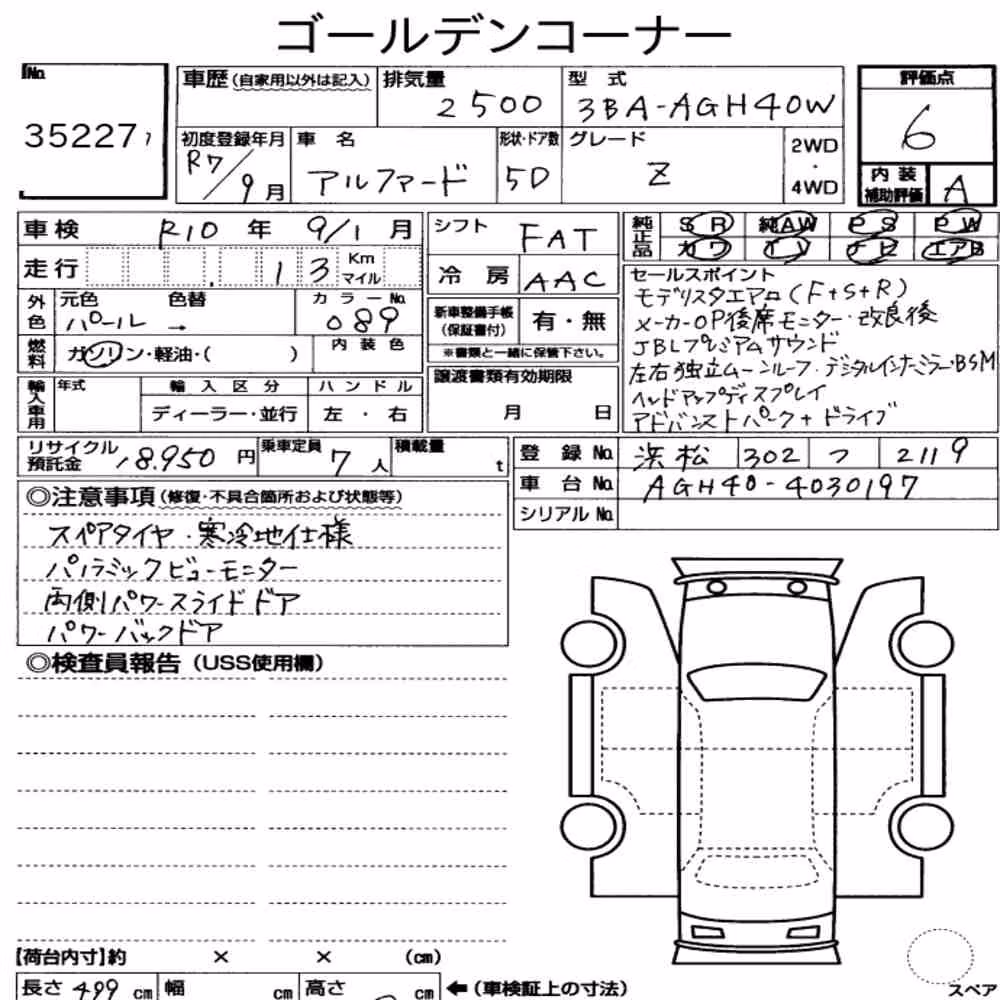 ゴールデンコーナー
No. 35227 7
車歴 (自家用以外は記入) 排気量 2500 型式 3BA-AGH40W
初度登録年月 R7/9月 車名 アルファード 形状・ドア数 5D グレード Z 2WD・4WD
評価点 6
内装補助評価 A
車検 R10年 9/1月
走行 13 Km マイル
シフト FAT
冷房 AAC
純正品 SR 純AW PS PW
カワ TV ナビ エアB
外色 元色 パール → 色替 カラーNo. 089
燃料 ガソリン・軽油・( ) 内装色
新車整備手帳(保証書付) 有・無
※書類と一緒に保管下さい。
セールスポイント
モデリスタエアロ(F+S+R)
メーカーOP後席モニター・改良後
JBLプレミアムサウンド
左右独立ムーンルーフ・デジタルインナーミラー・BSM
ヘッドアップディスプレイ
アドバンストパーク+ドライブ
輸入車用 年式 輸入区分 ハンドル
ディーラー・並行 左・右
譲渡書類有効期限
月 日
リサイクル預託金 18,950円 乗車定員 7人 積載量 t
登録No. 浜松 302 つ 2119
車台No. AGH40-4030197
シリアルNo.
◎注意事項(修復・不具合箇所および状態等)
スペアタイヤ・寒冷地仕様
パノラミックビューモニター
両側パワースライドドア
パワーバックドア
◎検査員報告(USS使用欄)
【荷台内寸】約 × × (cm)
長さ 499 cm 幅 cm 高さ cm ←(車検証上の寸法)
スペア